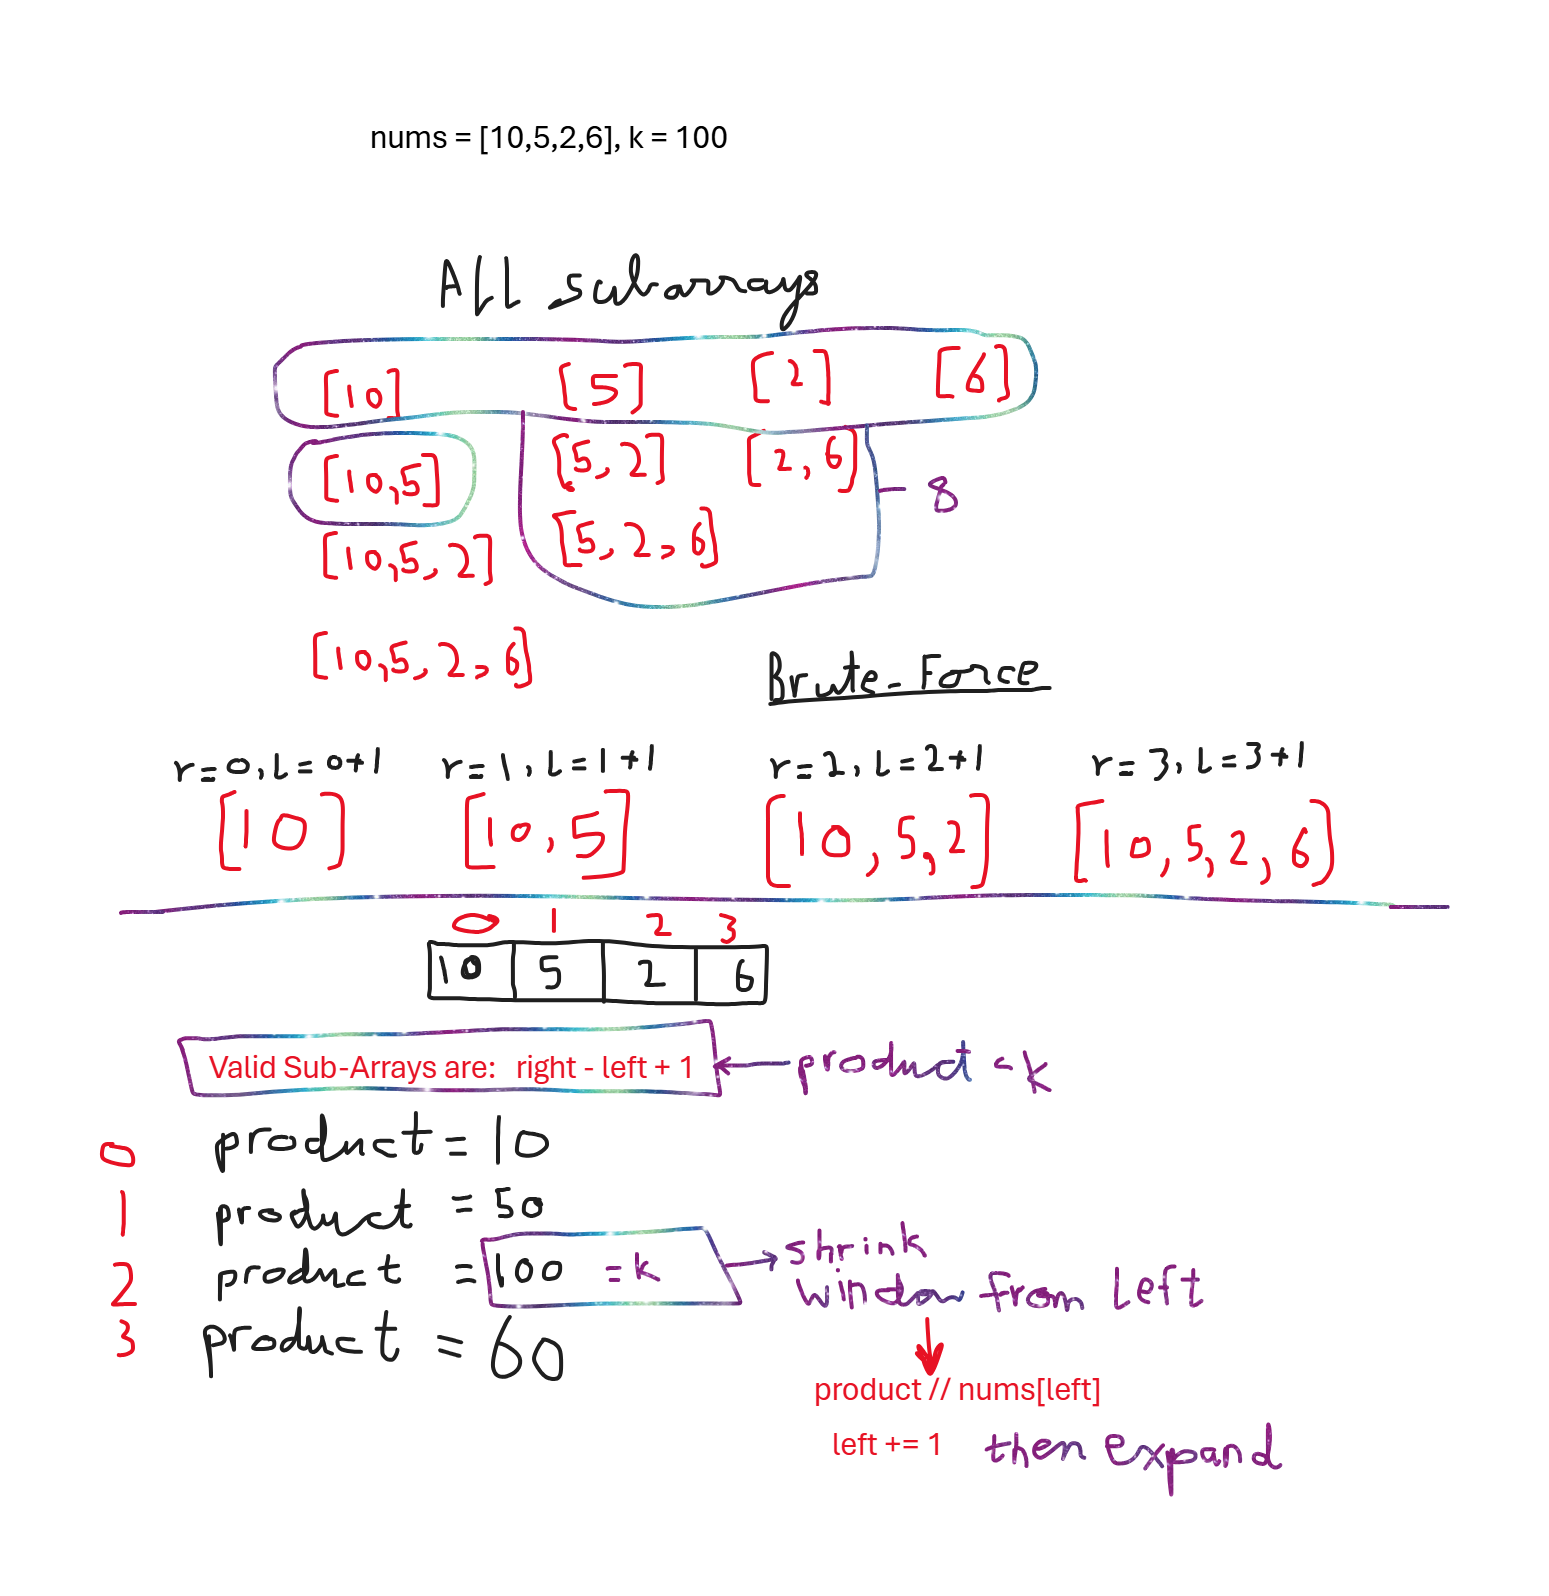 nums = [10,5,2,6], k = 100
All subarrays
[10] [5] [2] [6]
[10,5] [5, 2] [2, 6] - 8
[10,5, 2] [5, 2, 6]
[10,5, 2, 6]
Brute-Force
r=0, l=0+1 r=1, l=1+1 r=2, l=2+1 r=3, l=3+1
[10] [10, 5] [10, 5, 2] [10, 5, 2, 6]
0 1 2 3
10 5 2 6
Valid Sub-Arrays are: right - left + 1 product < k
0 product = 10
1 product = 50
2 product = 100 = k shrink
window from left
3 product = 60
product // nums[left]
left += 1 then expand